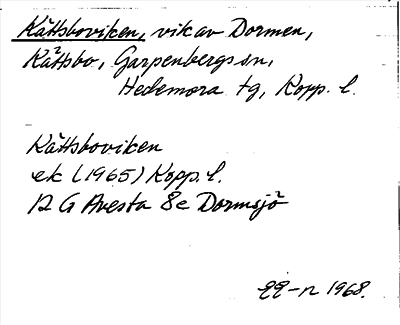 Kåttsboviken, vik av Dormen,
Kåttsbo, Garpenbergs sn,
Hedemora tg, Kopp. l.
Kåttsboviken
ek (1965) Kopp. l.
12 G Avesta 8e Dormsjö
1968.